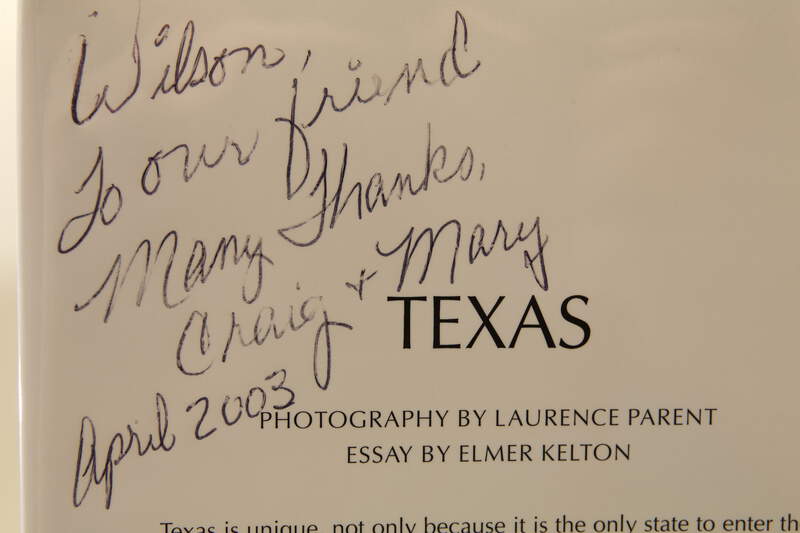 Wilson,
To our friend
Many Thanks,
Craig + Mary
April 2003
TEXAS
PHOTOGRAPHY BY LAURENCE PARENT
ESSAY BY ELMER KELTON
Texas is unique, not only because it is the only state to enter the